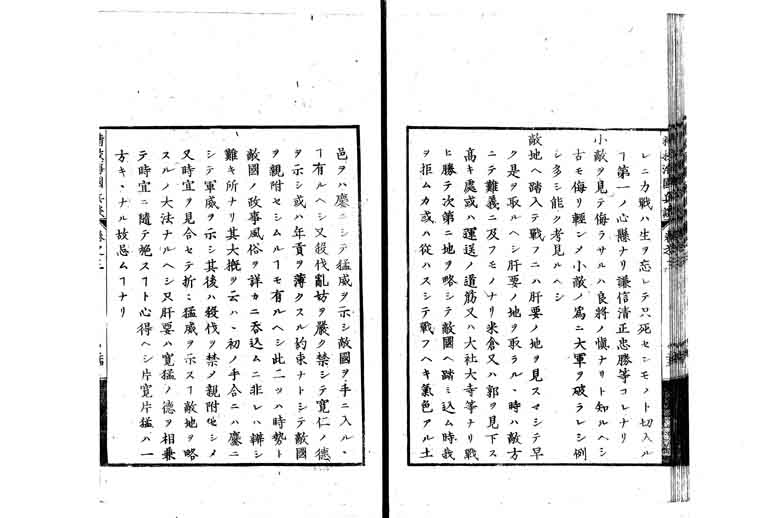 レニ力戦ハ生ヲ忘レテ只死センモノト切入ル
ヿ第一ノ心懸ナリ謙信清正忠勝等コレナリ
小敵ヲ見テ侮ラサルハ良將ノ愼ナリト知ルヘシ
古モ侮リ輕ンメ小敵ノ爲ニ大軍ヲ破ラレシ例
シ多シ能ク考見ルヘシ
敵地ヘ踏入テ戦フニハ肝要ノ地ヲ見スマシテ早
ク是ヲ取ルヘシ肝要ノ地ヲ取ラル丶時ハ敵方
ニテ難義ニ及フモノナリ米倉又ハ郭ヲ見下ス
高キ處或ハ運送ノ道筋又ハ大社大寺等ナリ戰
ヒ勝テ次第ニ地ヲ略シテ敵國ヘ踏ミ込ム時我
ヲ拒ムカ或ハ從ハスシテ戰フヘキ氣色アル土
邑ヲハ鏖ニシテ猛威ヲ示シ敵國ヲ手ニ入ル丶
ヿ有ルヘシ又殺伐亂妨ヲ嚴ク禁シテ寛仁ノ德
ヲ示シ或ハ年貢ヲ薄クスル約束ナトシテ敵國
ヲ親附セシムルヿモ有ルヘシ此二ツハ時勢ト
敵國ノ政事風俗ヲ詳カニ呑込ムニ非レハ辨シ
難キ所ナリ其大槪ヲ云ハ丶初ノ手合ニハ鏖ニ
シテ軍威ヲ示シ其後ハ殺伐ヲ禁メ親附セシメ
又時宜ヲ見合セテ折々猛威ヲ示スヿ敵地ヲ略
スルノ大法ナルヘシ只肝要ハ寛猛ノ德ヲ相兼
テ時宜ニ隨テ絶スヿト心得ヘシ片寛片猛ハ一
方キ丶ナル故忌ムヿナリ